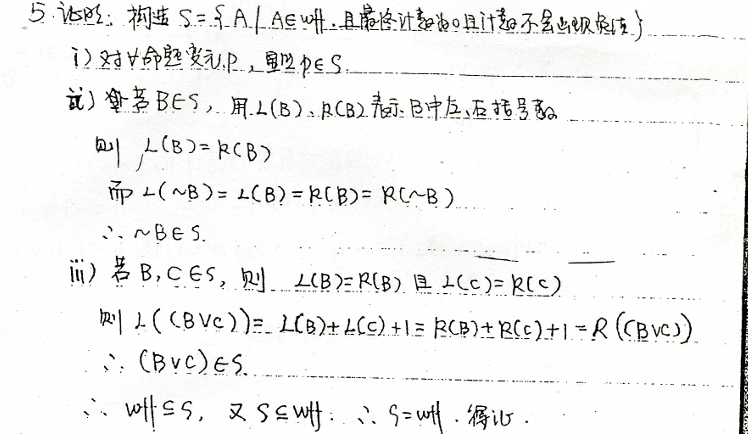 5.证明: 构造 S={A | A∈wff.且最终计数为0且计数不会出现负值}
i) 对∀命题变元p, 显然p∈S.
ii) 若B∈S, 用L(B)、R(B)表示B中左、右括号数
则 L(B)=R(B)
而 L(~B)=L(B)=R(B)=R(~B)
∴ ~B∈S.
iii) 若B,C∈S, 则 L(B)=R(B) 且 L(C)=R(C)
则 L((B∨C))=L(B)+L(C)+1=R(B)+R(C)+1=R((B∨C))
∴ (B∨C)∈S.
∴ wff⊆S, 又 S⊆wff. ∴ S=wff.得证.